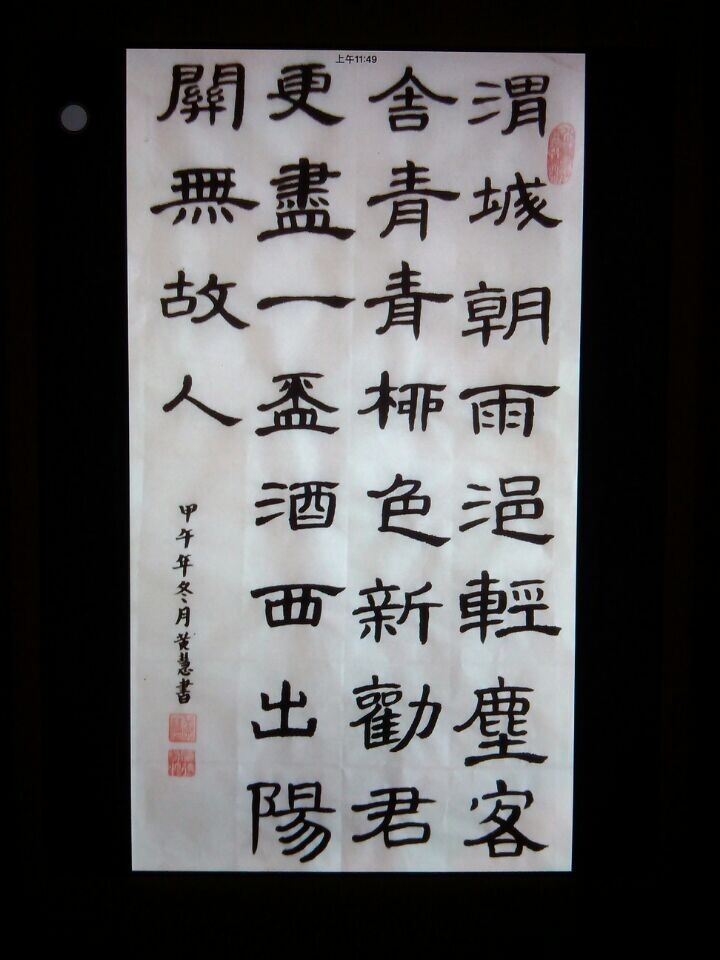 上午11:49
渭城朝雨浥輕塵客
舍青青栁色新勸君
更盡一盃酒西出陽
關無故人
甲午年冬月黄慧書